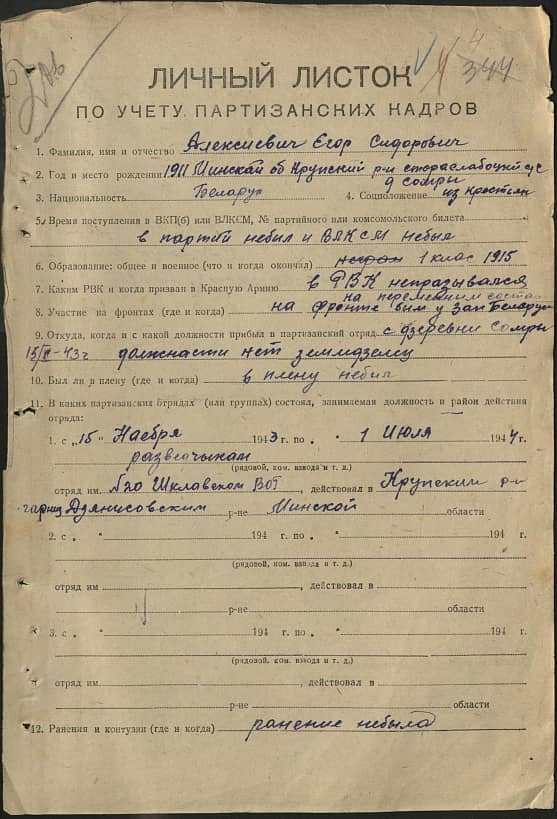 344
ЛИЧНЫЙ ЛИСТОК
ПО УЧЕТУ ПАРТИЗАНСКИХ КАДРОВ
1. Фамилия, имя и отчество Алексиевич Егор Сидорович
2. Год и место рождения 1911 Минскай об Крупский р-н стараслабоцкий с/с
д Сомры
3. Национальность Беларус 4. Соцположение из крестьян
5. Время поступления в ВКП(б) или ВЛКСМ, № партийного или комсомольского билета
в партий небил и ВЛКСМ небыл
6. Образование: общее и военное (что и когда окончил) 1 клас 1915
7. Каким РВК и когда призван в Красную Армию в РВК непразывался
на переменим состав
8. Участие на фронтах (где и когда) на фронте был у Зап Беларуси
9. Откуда, когда и с какой должности прибыл в партизанский отряд с дзеревни Сомры
15/ -43г должнасти нет земмдзелец
10. Был ли в плену (где и когда) в плену небил
11. В каких партизанских отрядах (или группах) состоял, занимаемая должность и район действия
отряда:
1. с „15" Наебря 1943 г. по „ 1 Июля 1944 г.
разведчыкам
(рядовой, ком. взвода и т. д.)
отряд им. №20 Шклавском ВОГ, действовал в Крупским р-н
гарниз Дзянисовским р-не Минской области
2. с „ " 194 г. по „ " 194 г.
(рядовой, ком. взвода и т. д.)
отряд им , действовал в
р-не области
3. с „ " 194 г. по „ " 194 г.
(рядовой, ком. взвода и т. д.)
отряд им. , действовал в
р-не области
12. Ранения и контузии (где и когда) ранение небыла